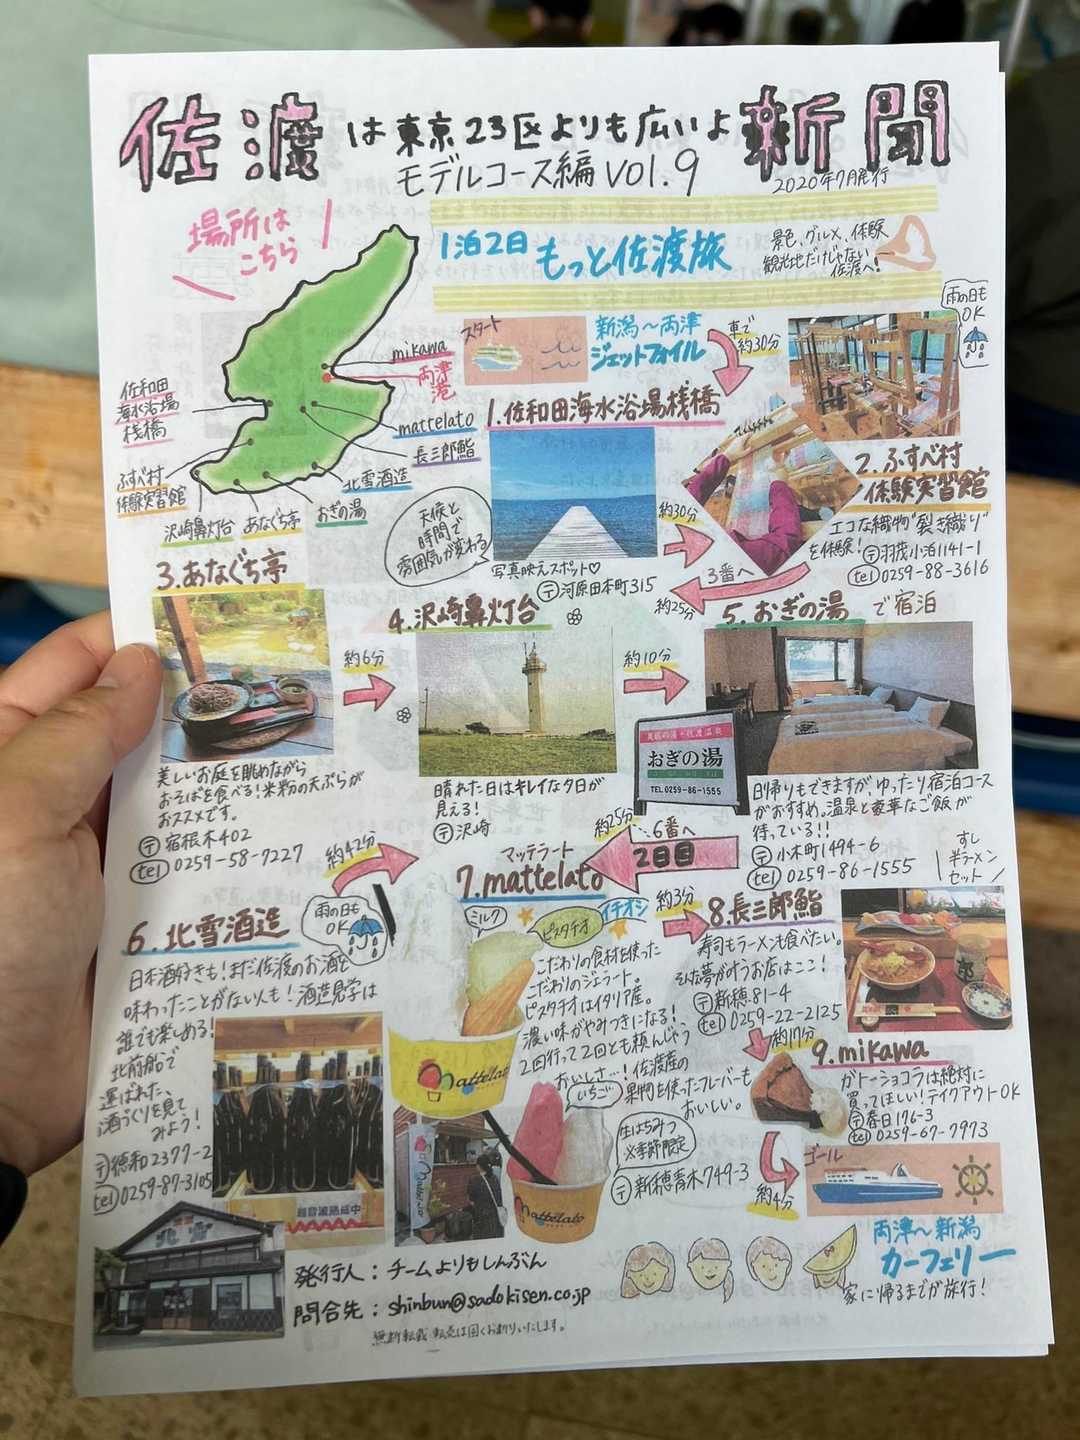 佐渡は東京23区よりも広いよ新聞
モデルコース編 vol.9
2020年7月発行
場所は
こちら
1泊2日
もっと佐渡旅
景色、グルメ、体験
観光地だけじゃない
佐渡へ!
mikawa
両津港
mattelato
長三郎鮨
北雪酒造
おぎの湯
あなぐち亭
沢崎鼻灯台
ふすべ村
体験実習館
佐和田
海水浴場
桟橋
スタート
新潟〜両津
ジェットフォイル
車で
約30分
雨の日も
OK
1.佐和田海水浴場桟橋
天候と
時間で
雰囲気が変わる
写真映えスポット♡
〒河原田本町315
約30分
2.ふすべ村
体験実習館
エコな織物"裂き織り"
を体験!
〒羽茂小泊1141-1
tel 0259-88-3616
3番へ
約25分
3.あなぐち亭
美しいお庭を眺めながら
おそばを食べる!米粉の天ぷらが
おススメです。
〒宿根木402
tel 0259-58-7227
約6分
4.沢崎鼻灯台
晴れた日はキレイな夕日が
見える!
〒沢崎
約10分
5.おぎの湯で宿泊
おぎの湯
TEL 0259-86-1555
日帰りもできますが、ゆったり宿泊コース
がおすすめ。温泉と豪華なご飯が
待っている!!
〒小木町1494-6
tel 0259-86-1555
約25分
6番へ
2日目
6.北雪酒造
雨の日も
OK
日本酒好きも!まだ佐渡のお酒を
味わったことがない人も!酒造見学は
誰でも楽しめる!
北前船で
運ばれた、
酒づくりを見て
みよう!
〒徳和2377-2
tel 0259-87-3105
約42分
マッテラート
7.mattelato
ミルク
ピスタチオ
イチオシ
こだわりの食材を使った
こだわりのジェラート。
ピスタチオはイタリア産。
濃い味がやみつきになる!
2回行って2回とも頼んじゃう
おいしさ…!佐渡産の
果物を使ったフレーバーも
おいしい。
いちご
生はちみつ
※季節限定
〒新穂青木749-3
mattelato
mattelato
約3分
8.長三郎鮨
すし
半ラーメン
セット
寿司もラーメンも食べたい。
そんな夢が叶うお店はここ!
〒新穂81-4
tel 0259-22-2125
約17分
9.mikawa
ガトーショコラは絶対に
買ってほしい!テイクアウトOK
〒春日176-3
tel 0259-67-7973
約4分
ゴール
両津〜新潟
カーフェリー
家に帰るまでが旅行!
発行人：チームよりもしんぶん
問合先：shinbun@sadokisen.co.jp
無断転載 転売は固くお断りいたします。